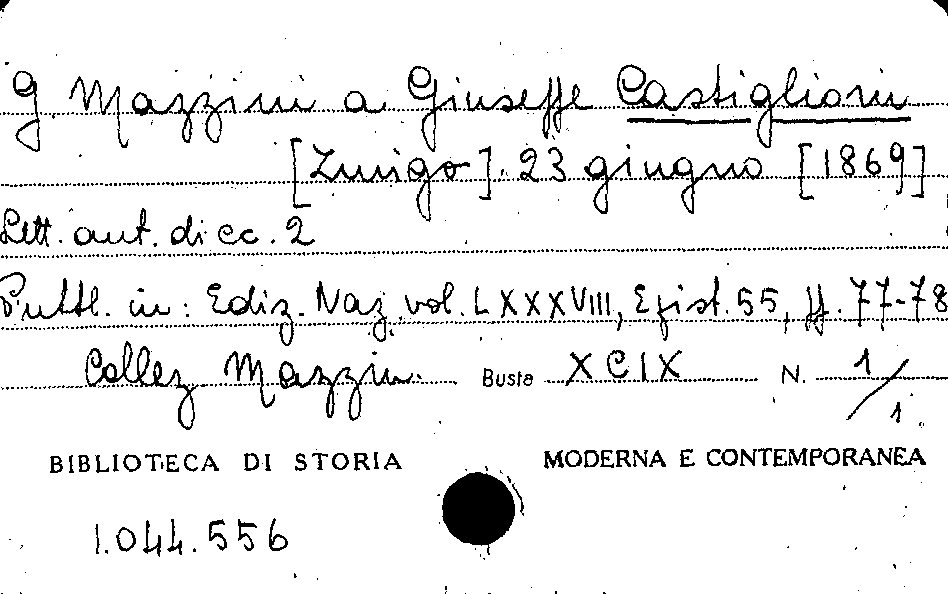 G Mazzini a Giuseppe Castiglioni
[Zurigo]. 23 giugno [1869]
Lett. aut. di cc. 2
Pubbl. in: Ediz. Naz. vol. LXXXVIII, Epist. 55, pp. 77-78
Collez. Mazzini. Busta XCIX N. 1/1
BIBLIOTECA DI STORIA MODERNA E CONTEMPORANEA
1.044.556